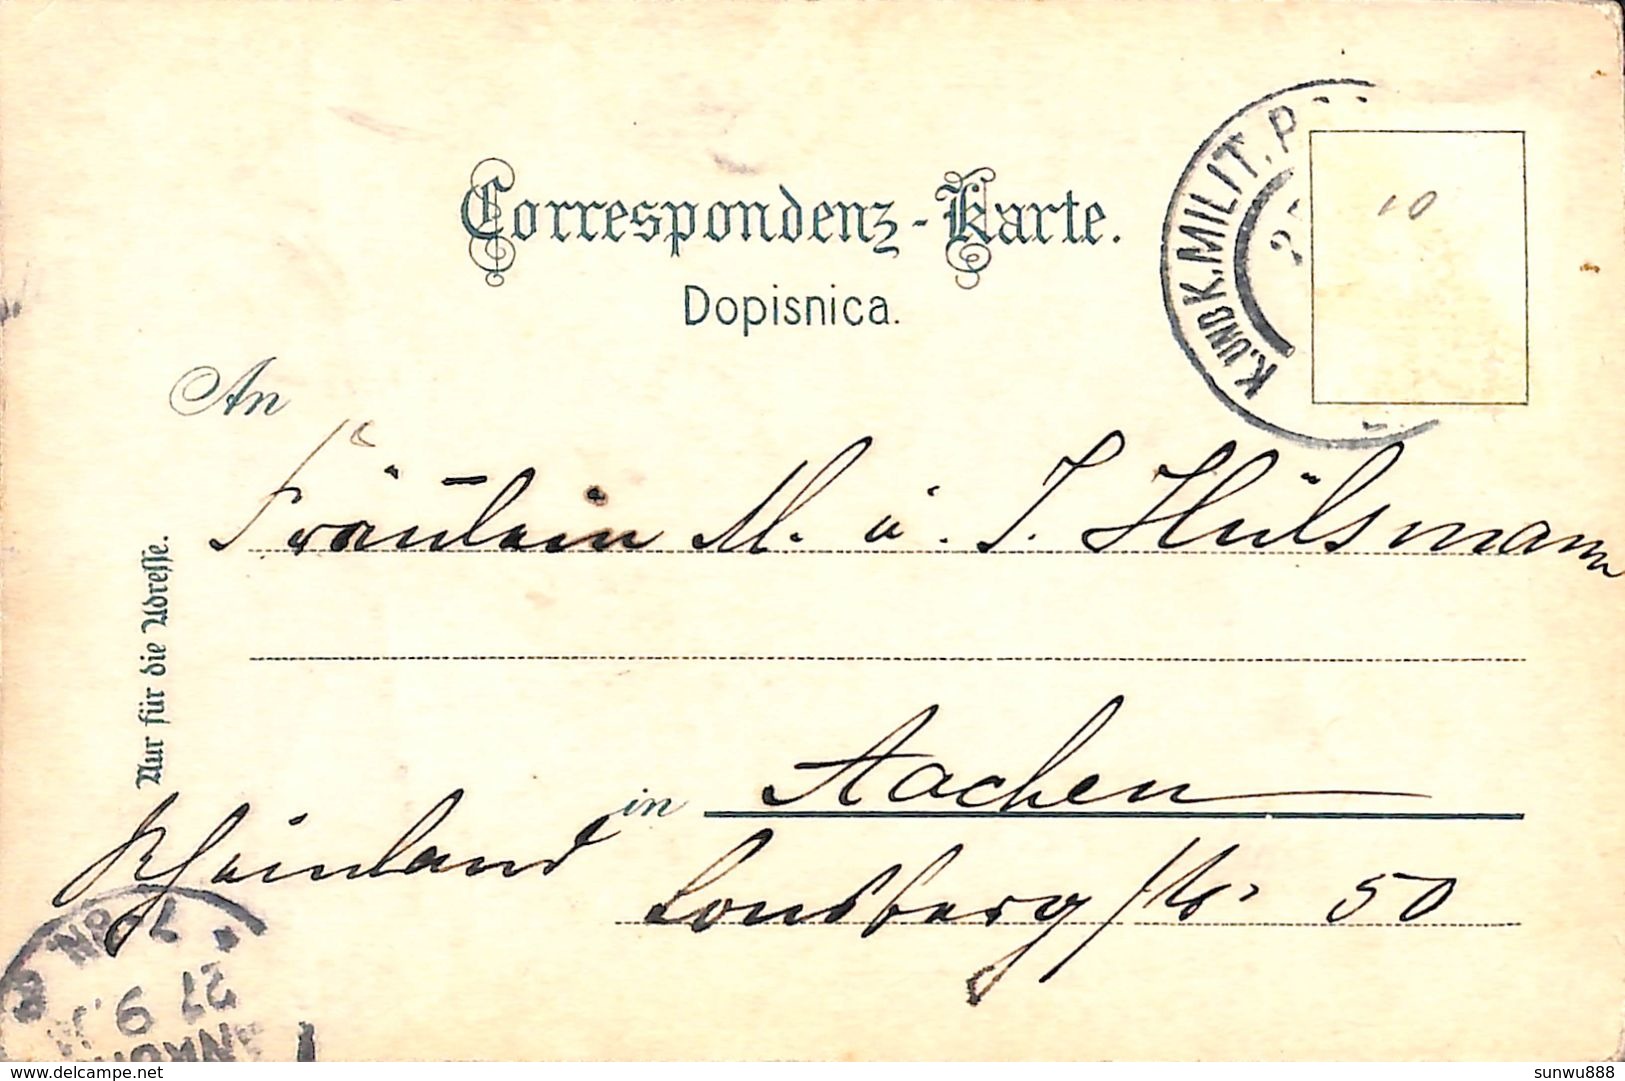 Correspondenz-Karte.
Dopisnica.
K.UND K. MILIT. P
10
An
Fräulein M. u. J. Hülsmann
Nur für die Adresse.
in Aachen
Rheinland
Lousbergstr. 50
27 9
delcampe.net
sunwu888